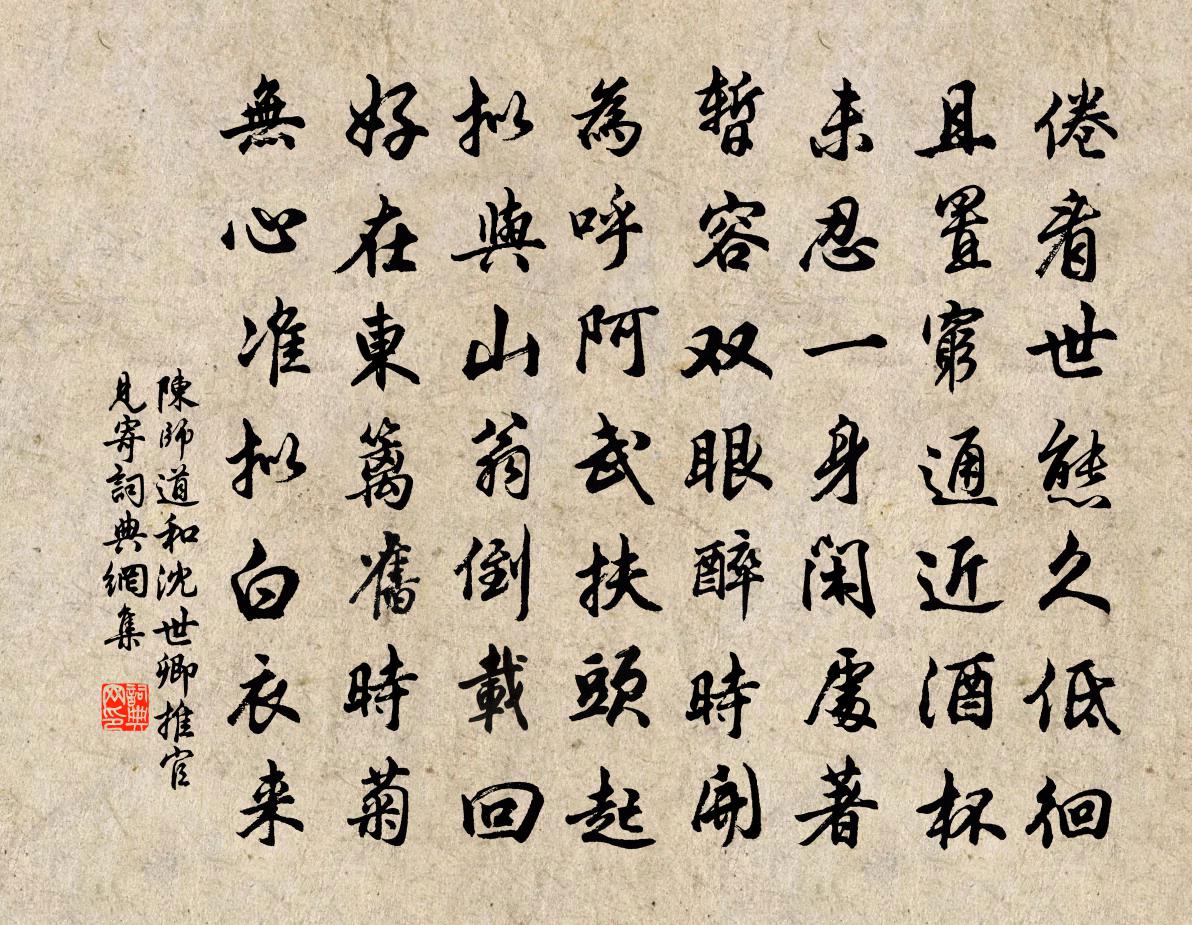 倦看世態久低徊
且置窮通近酒杯
未忍一身閑處著
暫容双眼醉時開
為呼阿武扶頭起
拟與山翁倒載回
好在東篱舊時菊
無心准拟白衣来
陳師道和沈世卿推官
見寄詞典網集
詞典
网印